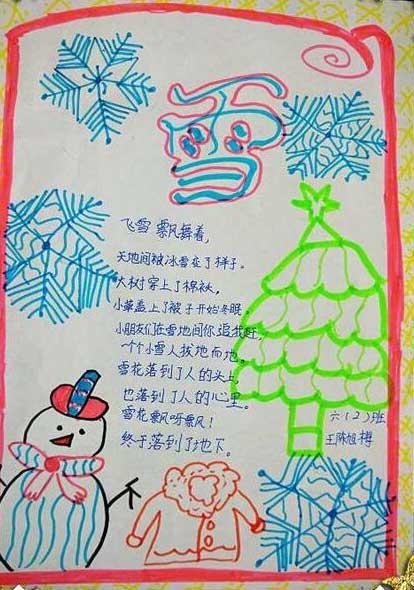 雪
飞雪飘风舞着,
天地间被冰雪在了样子。
大树穿上了棉袄,
小草盖上了被子开始冬眠。
小朋友们在雪地间你追我赶,
一个个小雪人拔地而地。
雪花落到了人的头上,
也落到了人的心里。
雪花飘风呀飘风!
终于落到了地下。
六(2)班
王陈旭